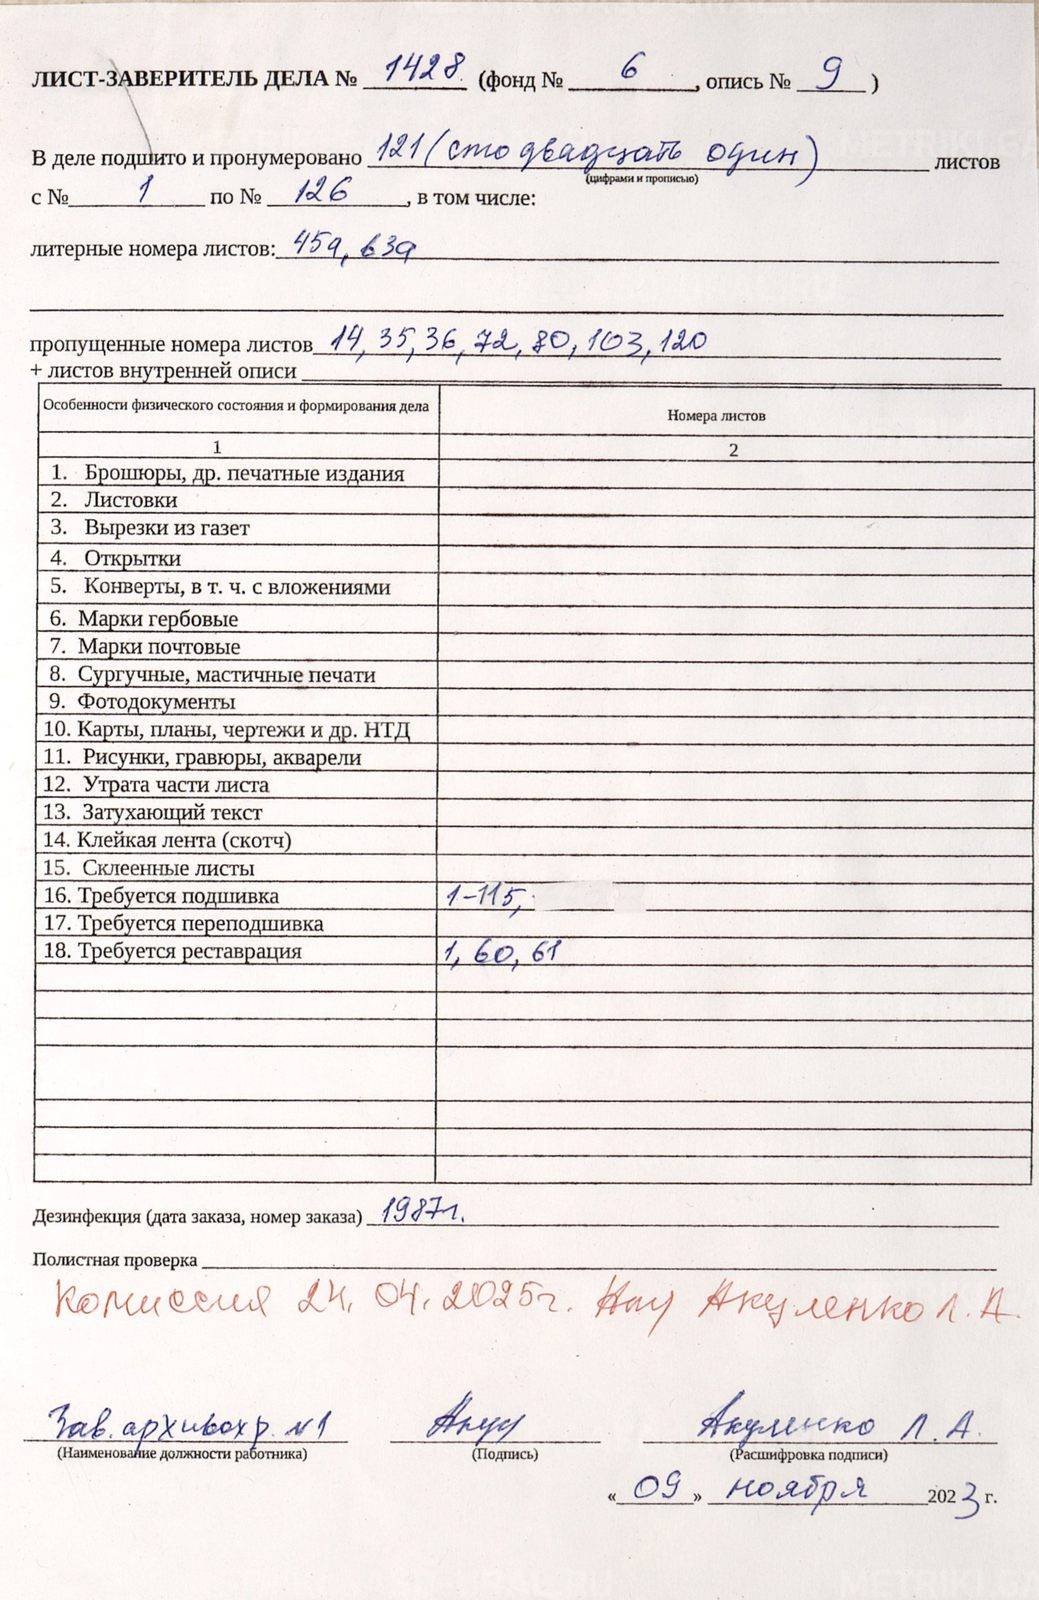 ЛИСТ-ЗАВЕРИТЕЛЬ ДЕЛА № 1428 (фонд № 6, опись № 9)
В деле подшито и пронумеровано 121 (сто двадцать один) листов
(цифрами и прописью)
с № 1 по № 126, в том числе:
литерные номера листов: 45а, 63а
пропущенные номера листов 14, 35, 36, 72, 80, 103, 120
+ листов внутренней описи
Особенности физического состояния и формирования дела Номера листов
1 2
1. Брошюры, др. печатные издания
2. Листовки
3. Вырезки из газет
4. Открытки
5. Конверты, в т. ч. с вложениями
6. Марки гербовые
7. Марки почтовые
8. Сургучные, мастичные печати
9. Фотодокументы
10. Карты, планы, чертежи и др. НТД
11. Рисунки, гравюры, акварели
12. Утрата части листа
13. Затухающий текст
14. Клейкая лента (скотч)
15. Склеенные листы
16. Требуется подшивка 1-115,
17. Требуется переподшивка
18. Требуется реставрация 1, 60, 61
Дезинфекция (дата заказа, номер заказа) 1987г.
Полистная проверка
Комиссия 24.04.2025г. Акуленко Л.А.
Зав. архивохр. №1 Акуленко Л.А.
(Наименование должности работника) (Подпись) (Расшифровка подписи)
«09» ноября 2023 г.